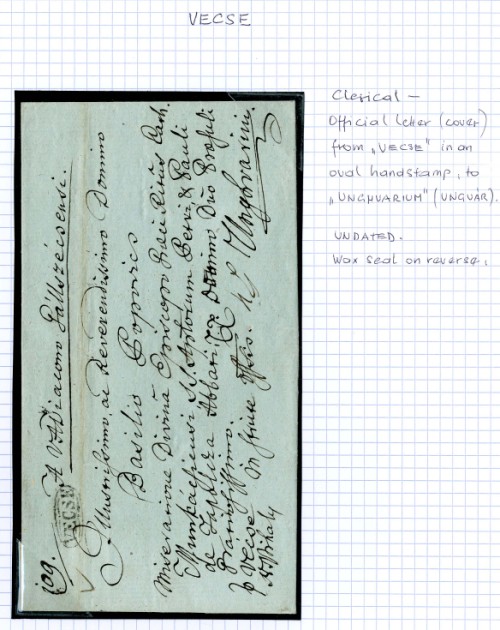 VECSE
Clerical —
Official letter (cover)
from „VECSE" in an
oval handstamp, to
„UNGHVARIUM" (UNGVÁR).
UNDATED.
Wax seal on reverse.
109.
A VADiacono Gállszécsensi.
VECSE
Illustrissimo ac Reverendissimo Domino
Basilio Popovics
Miseratione Divina Episcopo Graeci Ritus Cath.
Munkácsiensi S.S. Aptorum Petri & Pauli
de Tapolcza Abbati Domino Dno Praesuli
Gratiosissimo.
p Vecse Unghvarini.
N Mihaly